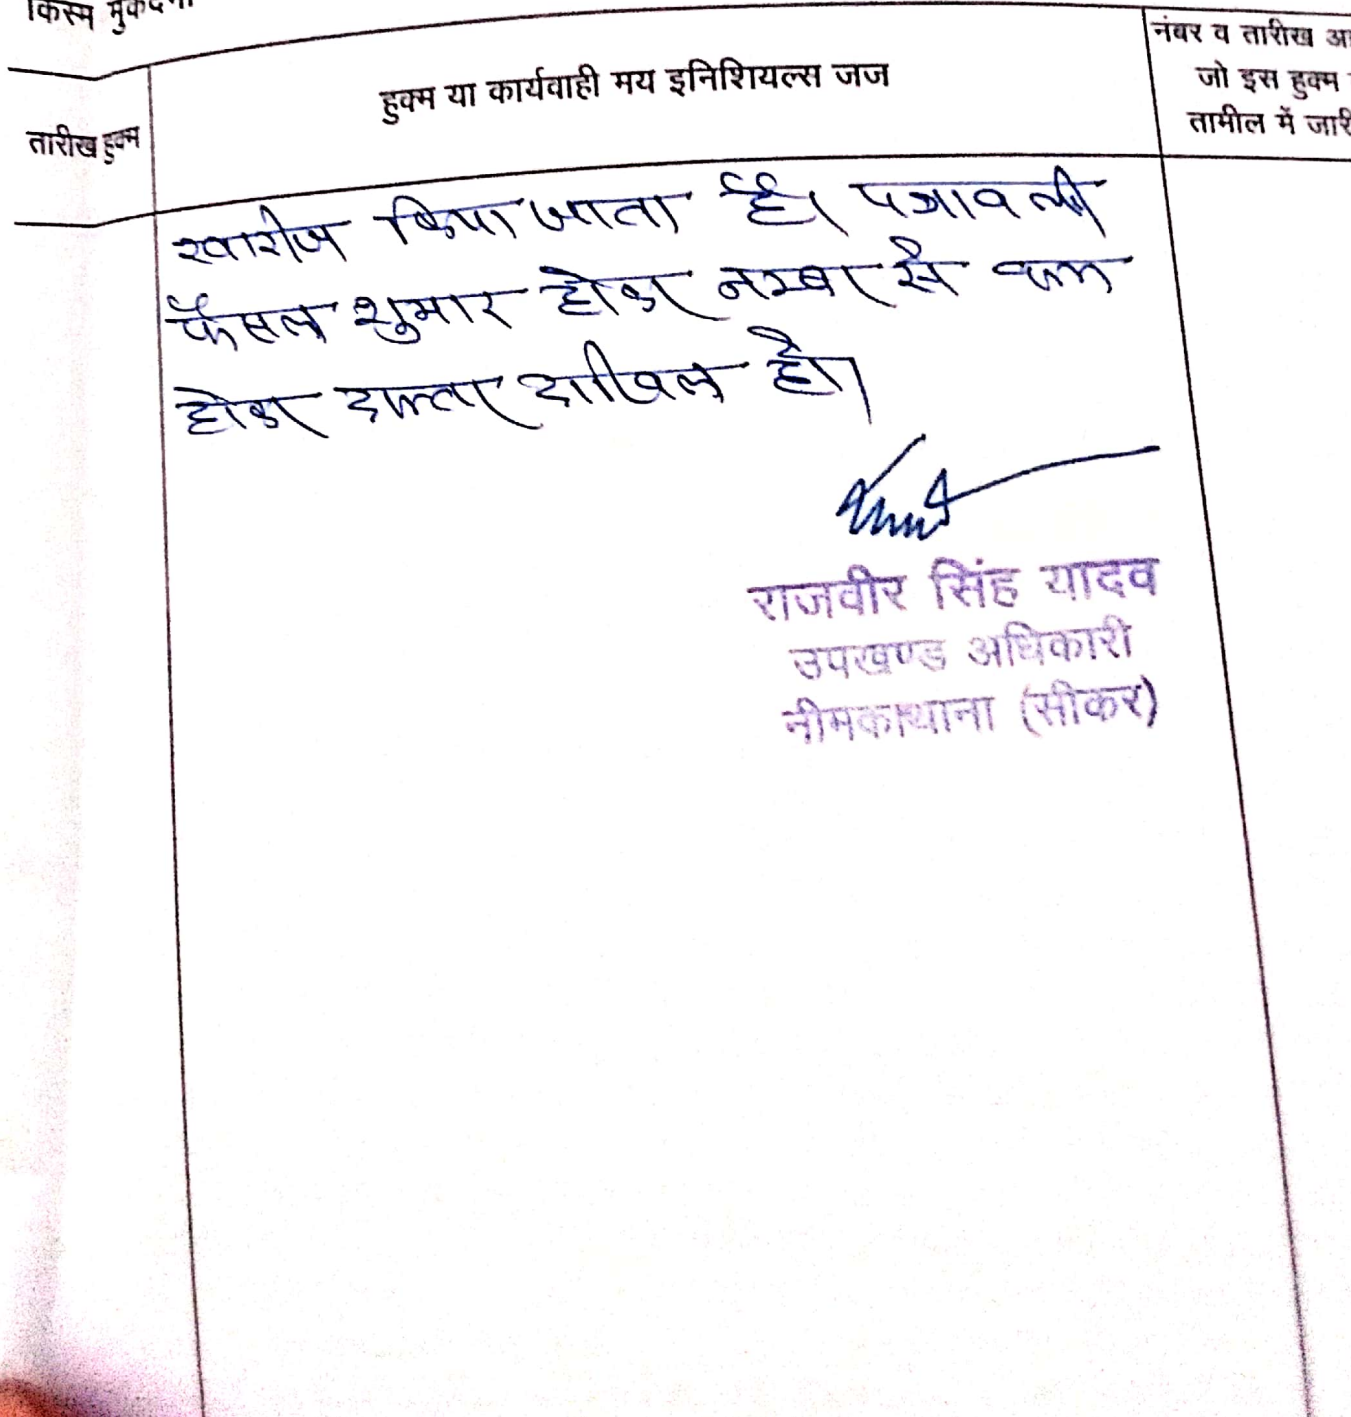 किस्म मुकदमा
नंबर व तारीख
हुक्म या कार्यवाही मय इनिशियल्स जज
जो इस हुक्म
तारीख हुक्म
तामील में जारी
खारीज किया जाता है। पत्रावली
फैसल शुमार होकर नम्बर से कम
होकर दफ्तर दाखिल हो।
राजवीर सिंह यादव
उपखण्ड अधिकारी
नीमकाथाना (सीकर)